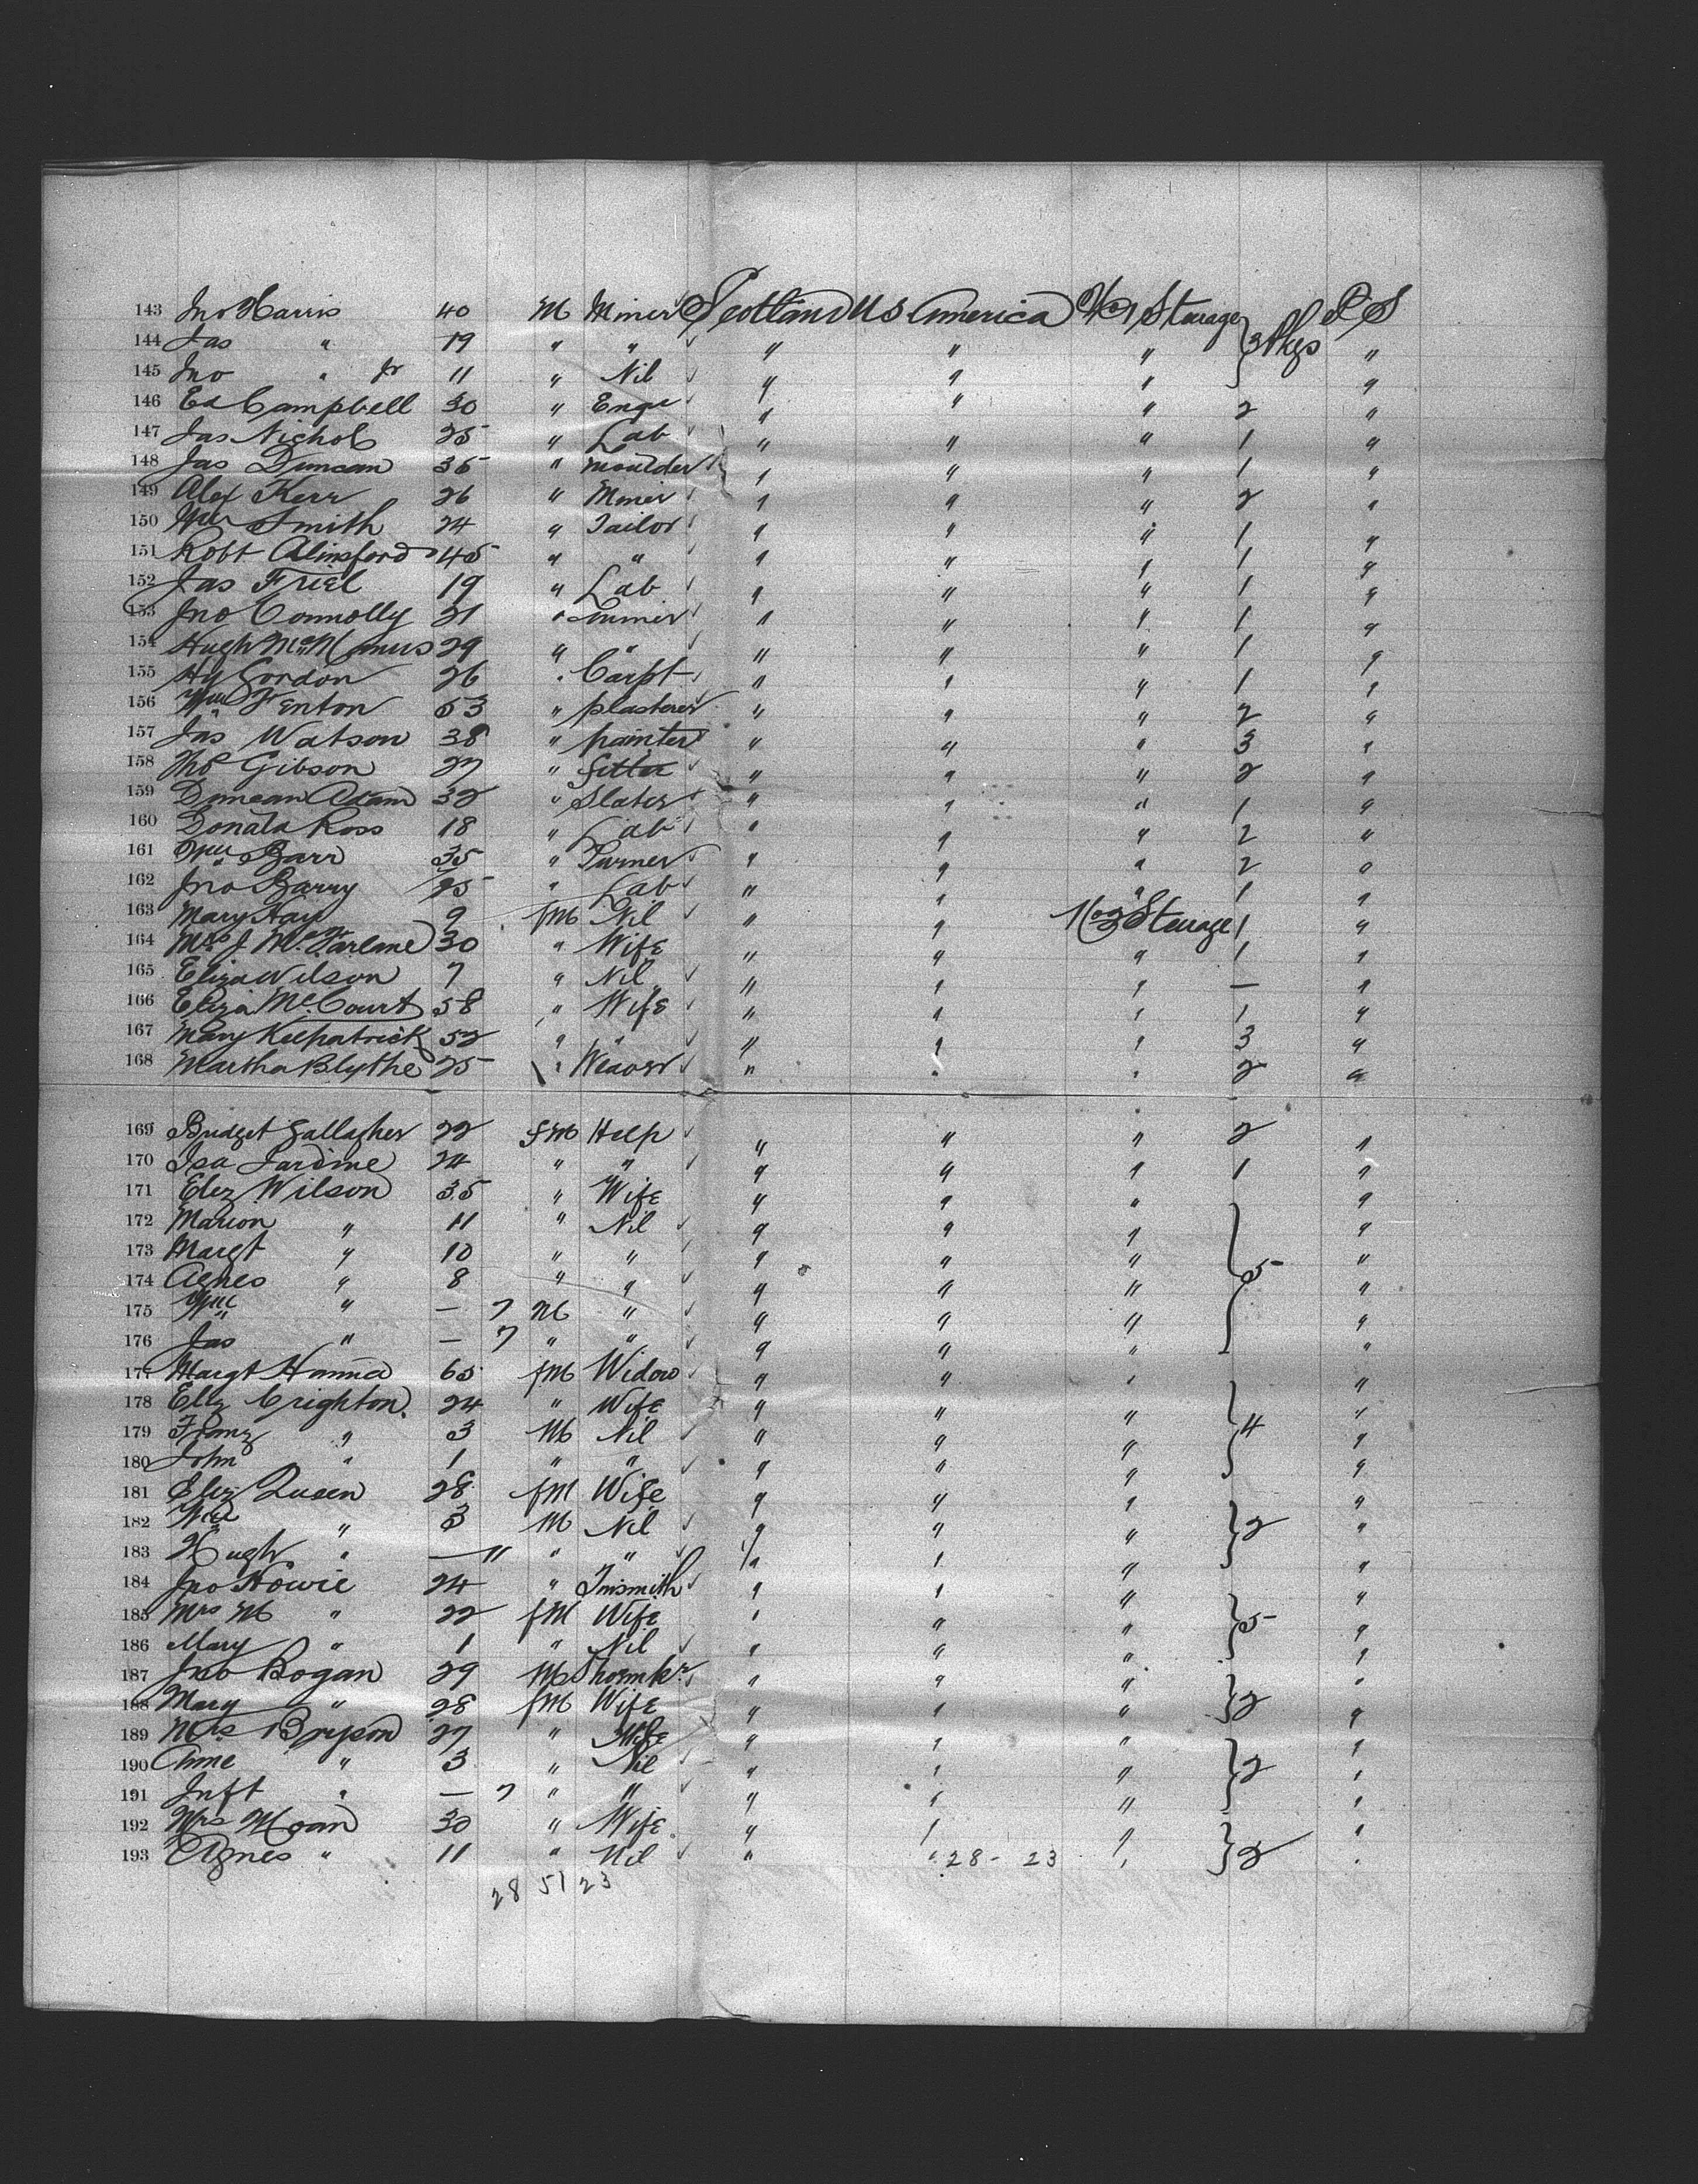 143 Jno Harris 40 M Miner Scotland US America No 1 Steurage 3 Pkgs P S
144 Jas " 19 " " " " " "
145 Jno " Jr 11 " Nil " " " "
146 Ed Campbell 30 " Engr " " " 2 "
147 Jas Nichols 25 " Lab " " " 1 "
148 Jas Duncan 35 " Moulder " " " 1 "
149 Alex Kerr 26 " Miner " " " 2 "
150 Wm Smith 24 " Tailor " " " 1 "
151 Robt 45 " " " " " 1 "
152 Jas Friel 19 " Lab " " " 1 "
153 Jno Connolly 21 " " " " 1 "
154 Hugh McManus 29 " " " " " 1 "
155 Hy Gordon 26 " Carpt " " " 1 "
156 Wm Fenton 53 " plasterer " " " 2 "
157 Jas Watson 38 " painter " " " 3 "
158 Tho Gibson 27 " fitter " " " 2 "
159 Duncan Adam 32 " Slater " " " 1 "
160 Donald Ross 18 " Lab " " " 2 "
161 Wm Barr 35 " Turner " " " 2 "
162 Jno Barry 25 " Lab " " " 1 "
163 Mary Hay 9 fM Nil " " No 3 Steurage 1 "
164 Mrs J McFarlane 30 " Wife " " " 1 "
165 Eliza Wilson 7 " Nil " " " — "
166 Eliza McCourt 58 " Wife " " " 1 "
167 Mary Kilpatrick 52 " " " " " 3 "
168 Martha Blythe 25 " Weaver " " " 2 "
169 Bridget Gallagher 22 fM Help " " " 2 "
170 Isa Jardine 24 " " " " " 1 "
171 Eliz Wilson 35 " Wife " " " "
172 Marion " 11 " Nil " " " "
173 Margt " 10 " " " " " 5 "
174 Agnes " 8 " " " " " "
175 Wm " — 7 M " " " " "
176 Jas " — 7 " " " " " "
177 Margt Hanna 65 fM Widow " " " "
178 Eliz Crighton 24 " Wife " " " "
179 " 3 M Nil " " " 4 "
180 John " 1 " " " " " "
181 Eliz 28 fM Wife " " " "
182 Wm " 3 M Nil " " " 2 "
183 Hugh " — 11 " " " " " "
184 Jno Howie 24 " Tinsmith " " " "
185 Mrs M " 22 fM Wife " " " 5 "
186 Mary " 1 " Nil " " " "
187 Jno Bogan 29 M Shoemkr " " " "
188 Mary " 28 fM Wife " " " 2 "
189 Mrs Bryson 27 " Wife " " " "
190 Anne " 3 " Nil " " " 2 "
191 Inft " — 7 " " " " " "
192 Mrs Moan 30 " Wife " " " "
193 Agnes " 11 " Nil " " 28 - 23 " 2 "
28 51 23